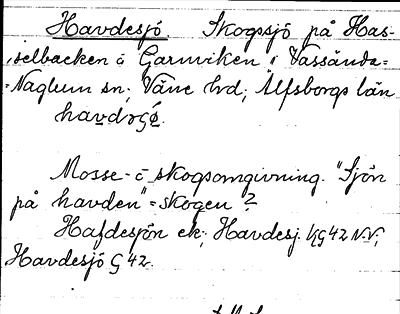 Havdesjö. Skogssjö på Has-
selbacken å Garnviken i Vassända=
=Naglum sn; Väne hd; Älfsborgs län

Mosse- o skogsomgivning. "Sjön
på havden" = skogen?
Hafdesjön ek; Havdesj. KG 42 N.V;
Havdesjö G 42.